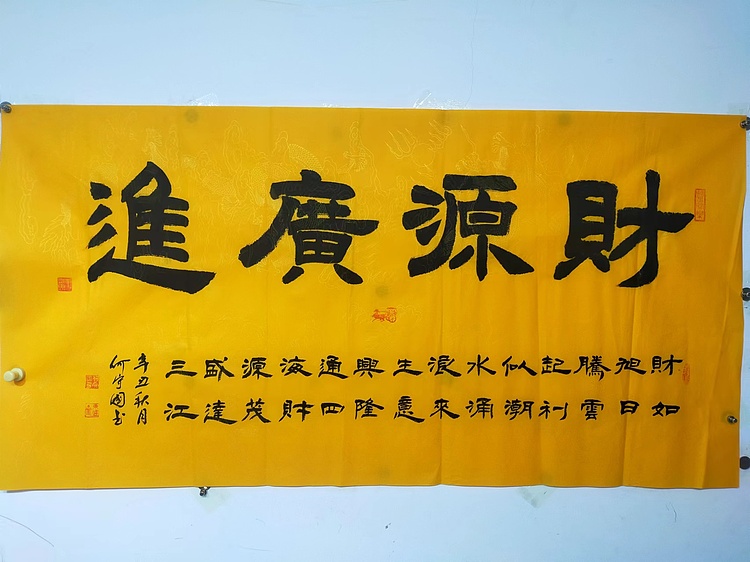 財源廣進
財如
旭日
騰雲
起利
似潮
水涌
滾來
生意
興隆
通四
海財
源茂
盛達
三江
辛丑秋月
何守國书